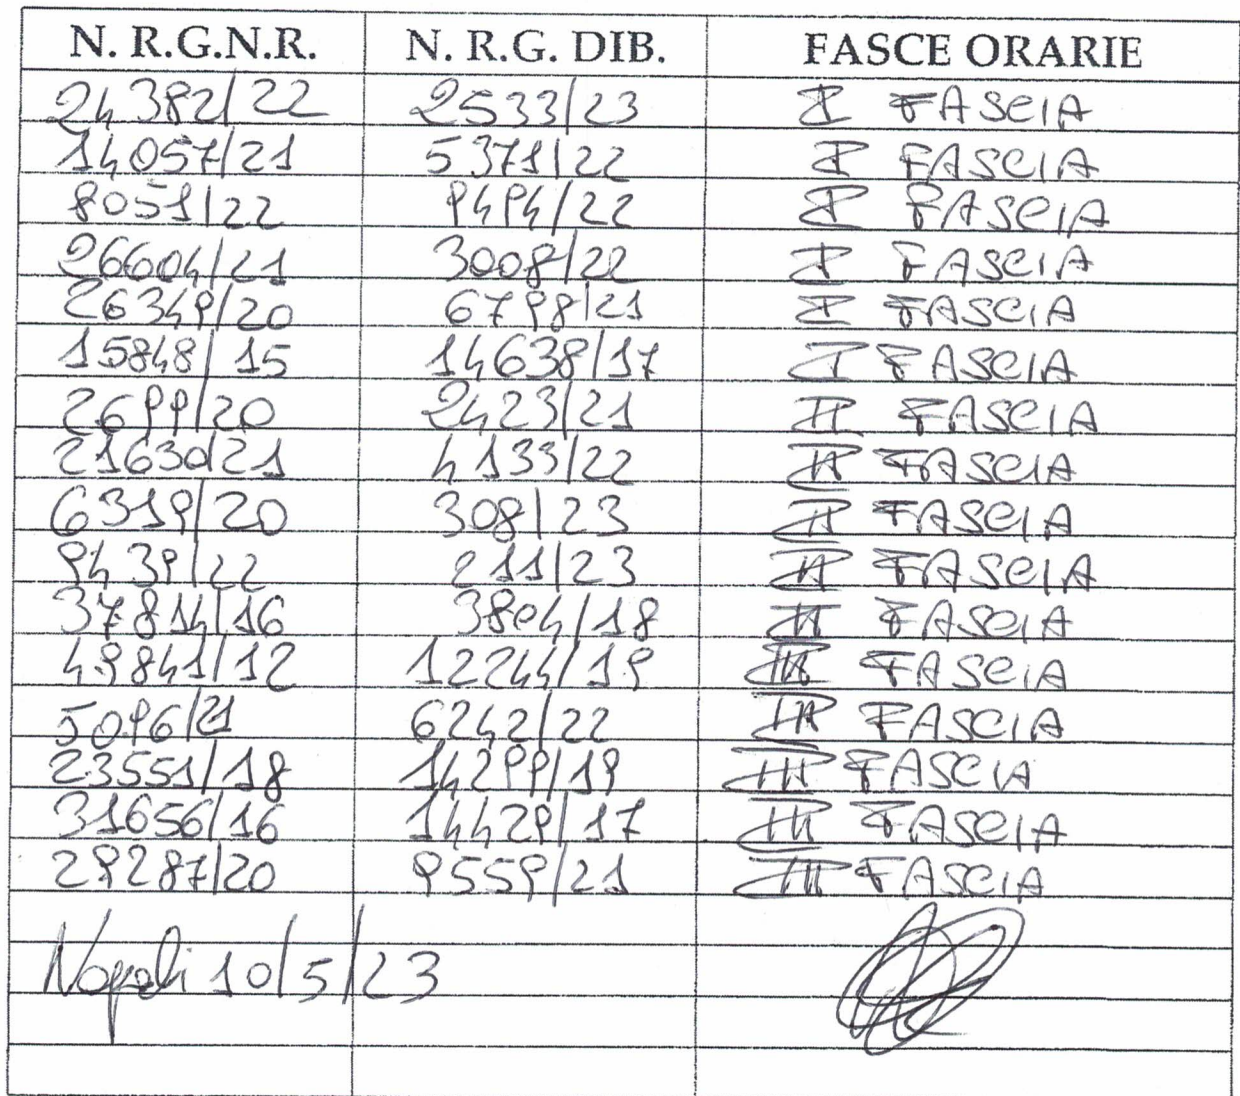 N. R.G.N.R. N. R.G. DIB. FASCE ORARIE
24382/22 2533/23 I FASCIA
14057/21 5371/22 I FASCIA
8051/22 9494/22 I FASCIA
26604/21 3008/22 I FASCIA
26349/20 6798/21 I FASCIA
15848/15 14638/17 I FASCIA
2699/20 2423/21 II FASCIA
21630/21 4133/22 II FASCIA
6319/20 308/23 II FASCIA
9439/22 211/23 II FASCIA
37814/16 3804/18 II FASCIA
49841/12 12244/19 III FASCIA
5096/21 6242/22 III FASCIA
23551/18 14299/19 III FASCIA
31656/16 14429/17 III FASCIA
29287/20 9559/21 III FASCIA
Napoli 10/5/23